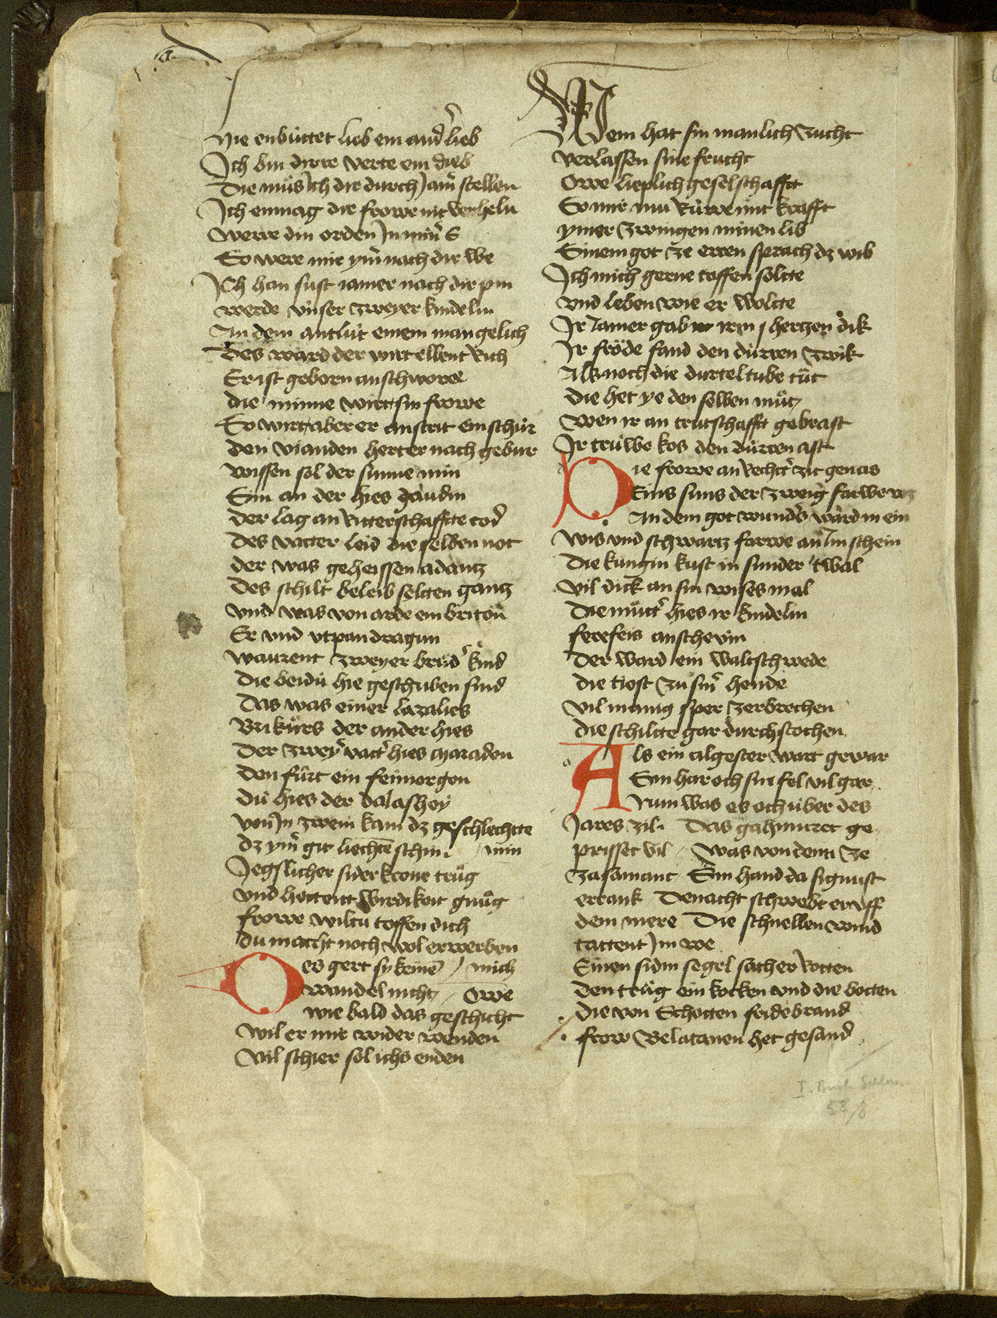 Hie enbúttet lieb ein and̕ lieb
Ich bin dirre verte ein dieb
Die můs ich dir durch iam̕ stellen
Ich enmag dir frowe nit verheln
Werre din orden in min̕ e
So were mir ym̕ nach dir we
Ich han sust iamer nach dir pin
werde vnser zweyer kindelin
An dem antlút einem man gelich
Des ward der wirt ellent rich
Er ist geborn anschowe
die minne wirt sin frowe
So wirt aber er an strit ein schúr
den vianden herter nach gebur
wissen sol der sunne min
Sin an der hies Gandin
der lag an ritterschaffte tod̕
Des vatter leid die selben not
der was geheissen adantz
des schilt beleib selten gantz
vnd was von arde ein britun̕
Er vnd vtpandragun
warent zweyer brůd̕ kind
die beidú hie geschriben sind
Das was einer lazalies
Brikurs der ander hies
Der zwey̕ vatt̕ hies mazaden
Den fůrt ein feimorgen
dú hies der dalaschoy
von in zwein kam dz geschlechte
dz ym̕ git liechtē schin min
Iegslicher sider krone trůg
vnd hettent wirdikeit gnůg
frowe wiltu toffen dich
du macht noch wol erwerben
Des gert sy keinē mich
wandel nicht Owe
wie bald das geschicht
wil er mir wider wenden
Vil schier sol ichs enden
Wem hat sin manlich zucht
verlassen sine frucht
Owe lieplich geselschafft
So mir nu rúwe mit krafft
ymer zwingen minen lib
Sinem got ze erren sprach dz wib
Ich mich gerne toffen solte
vnd leben wie er wolte
Ir iamer gab irm hertzen dik
Ir fröde fand den dúrren zwik
Als noch die turteltube tůt
die het ye den selben můt
Wen ir an trutschafft gebrast
Ir trúwe kos den dúrren ast
Die frowe an recht̕ zit genas
Eins suns der zweig̕ farwe
An dem got wund̕s ward in ein
wis vnd schwartz farwe an im schein
Die kúngin kust in sunder twal
Vil dick an sin wises mal
Die můtt̕ hies ir kindelin
ferefeis anschevin
Der ward ein waltschwede
die tiost zů sin̕ hende
Vil manig sper zerbrechen
Die schilte gar durchstochen
Als ein algester wart gewar
Sin har och sin fel vil gar
Nun was es och über des
Iares zil Das gahmuret ge
prisset vil Was von dem ze
zasamant Sin hand da sigunst
errank Denacht schwebt er vff
dem mere Die schnellen wind
tattent im we
Einen sidin segel sach er rotten
Den trůg ein kocken vnd die botten
Die von Schotten fridebrand
frow Belatanen het gesand̕